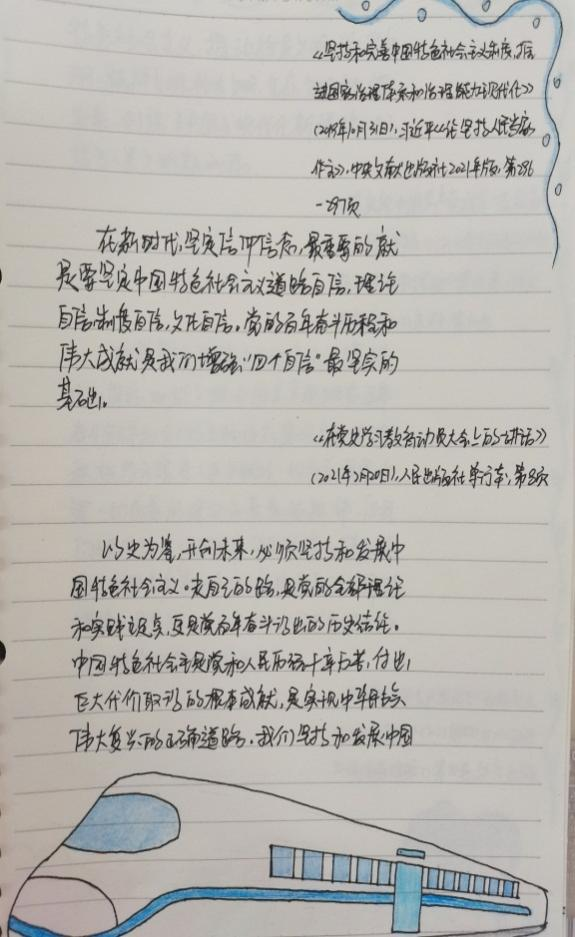 《坚持和完善中国特色社会主义制度、推
进国家治理体系和治理能力现代化》
(2019年10月31日),习近平《论坚持人民当家
作主》,中央文献出版社2021年版,第296
-297页
在新时代,坚定信仰信念,最重要的就
是要坚定中国特色社会主义道路自信,理论
自信,制度自信,文化自信。党的百年奋斗历程和
伟大成就是我们增强“四个自信”最坚实的
基础。
《在党史学习教育动员大会上的讲话》
(2021年2月20日),人民出版社单行本,第 页
以史为鉴,开创未来,必须坚持和发展中
国特色社会主义。走自己的路,是党的全部理论
和实践立足点,更是党百年奋斗得出的历史结论。
中国特色社会主是党和人民历经千辛万苦,付出
巨大代价取得的根本成就,是实现中华民族
伟大复兴的正确道路。我们坚持和发展中国